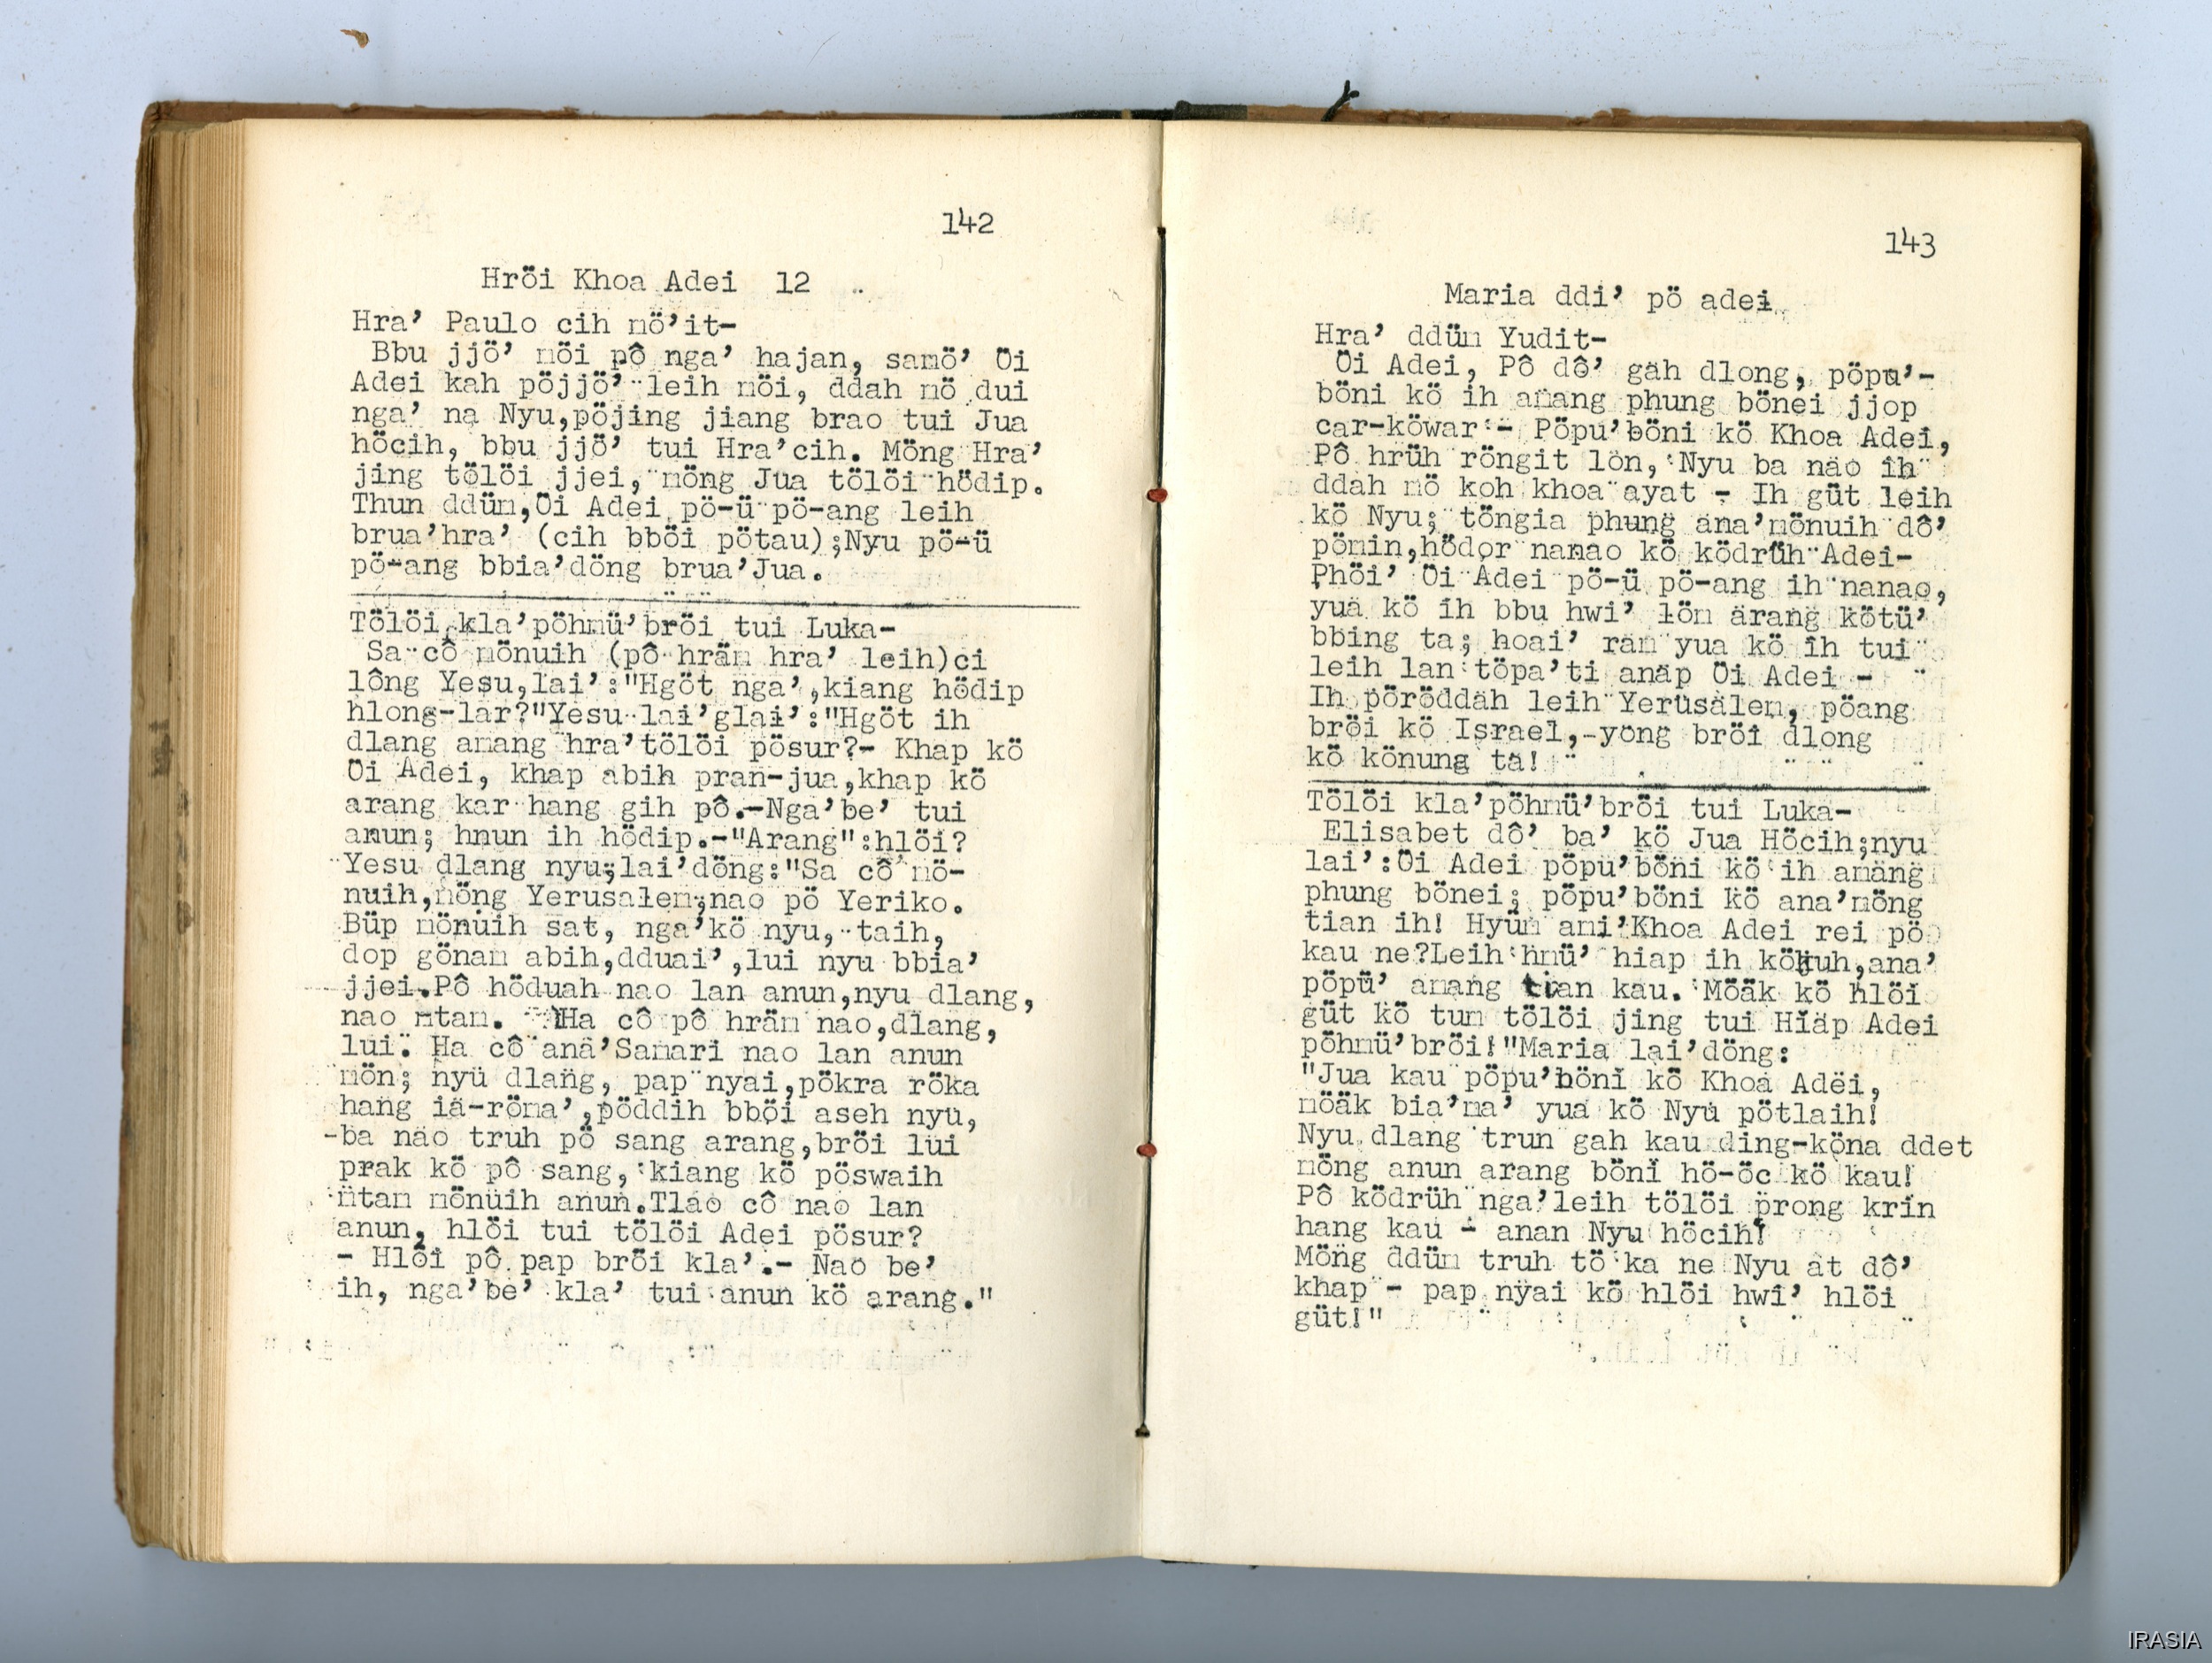 142
Hröi Khoa Adei 12
Hra’ Paulo cih mö’it-
Bbu jjö’ möi pô nga’ hajan, samö’ Öi
Adei kah pöjjö’ leih möi, ddah mö dui
nga’ na Nyu,pöjing jiang brao tui Jua
höcih, bbu jjö’ tui Hra’cih. Möng Hra’
jing tölöi jjei, möng Jua tölöi hödip.
Thun ddüm,Öi Adei pö-ü pö-ang leih
brua’hra’ (cih bböi pötau);Nyu pö-ü
pö-ang bbia’döng brua’Jua.
Tölöi kla’pöhmü’bröi tui Luka-
Sa cô mönuih (pô hräm hra’ leih)ci
lông Yesu,lai’:"Hgöt nga’,kiang hödip
hlong-lar?"Yesu lai’glai’:"Hgöt ih
dlang amang hra’tölöi pösur?- Khap kö
Öi Adei, khap abih pran-jua,khap kö
arang kar hang gih pô.-Nga’be’ tui
anun; hnun ih hödip.-"Arang":hlöi?
Yesu dlang nyu;lai’döng:"Sa cô mö-
nuih,möng Yerusalem;nao pö Yeriko.
Büp mönuih sat, nga’kö nyu, taih,
dop gönam abih,dduai’,lui nyu bbia’
jjei.Pô höduah nao lan anun,nyu dlang,
nao mtam. Ha cô pô hräm nao,dlang,
lui. Ha cô ana’Samari nao lan anun
mön; nyu dlang, pap nyai,pökra röka
hang ia-röma’,pöddih bböi aseh nyu,
ba nao truh pö sang arang,bröi lui
prak kö pô sang, kiang kö pöswaih
mtam mönuih anun.Tlao cô nao lan
anun, hlöi tui tölöi Adei pösur?
- Hlöi pô pap bröi kla’.- Nao be’
ih, nga’be’ kla’ tui anun kö arang."
143
Maria ddi’ pö adei
Hra’ ddüm Yudit-
Öi Adei, Pô dô’ gah dlong, pöpu’-
böni kö ih amang phung bönei jjop
car-köwar - Pöpu’böni kö Khoa Adei,
Pô hrüh röngit lön, Nyu ba nao ih
ddah mö koh khoa ayat - Ih güt leih
kö Nyu; töngia phung ana’mönuih dô’
pömin,hödor nanao kö ködrüh Adei-
Phöi’ Öi Adei pö-ü pö-ang ih nanao,
yua kö ih bbu hwi’ lön arang kötü’
bbing ta; hoai’ ram yua kö ih tui
leih lan töpa’ti anap Öi Adei -
Ih pöröddah leih Yerusalem, pöang
bröi kö Israel, yong bröi dlong
kö könung ta!
Tölöi kla’pöhmü’bröi tui Luka-
Elisabet dô’ ba’ kö Jua Höcih;nyu
lai’:Öi Adei pöpu’böni kö ih amang
phung bönei; pöpu’böni kö ana’möng
tian ih! Hyüm ami’Khoa Adei rei pö
kau ne?Leih hmü’ hiap ih kökuh,ana’
pöpü’ amang tian kau. Möäk kö hlöi
güt kö tum tölöi jing tui Hiap Adei
pöhmü’bröi!"Maria lai’döng:
"Jua kau pöpu’böni kö Khoa Adei,
möäk bia’ma’ yua kö Nyu pötlaih!
Nyu dlang trun gah kau ding-köna ddet
möng anun arang böni hö-öc kö kau!
Pô ködrüh nga’leih tölöi prong krin
hang kau - anan Nyu höcih!
Möng ddüm truh tö ka ne Nyu at dô’
khap - pap nyai kö hlöi hwi’ hlöi
güt!"
IRASIA